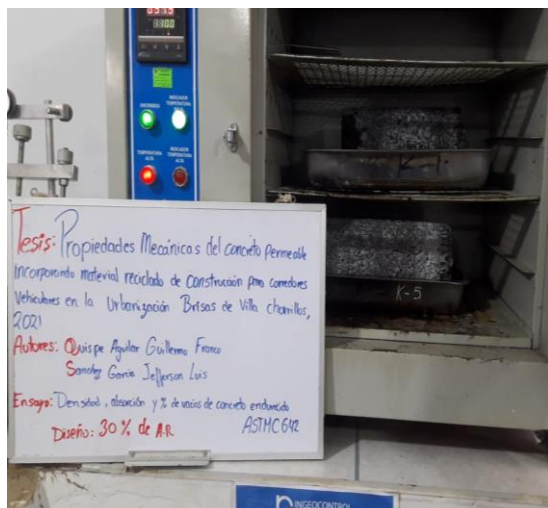 0100
ENCENDIDO
INDICADOR
TEMPERATURA
TEMPERATURA
ALTA
INDICADOR
TEMPERATURA
ALTA
K-5
Tesis: Propiedades Mecánicas del concreto permeable
incorporando material reciclado de construcción para corredores
vehiculares en la Urbanización Brisas de Villa chorrillos,
2021
Autores: Quispe Aguilar Guillermo Franco
Sanchez Garcia Jefferson Luis
Ensayo: Densidad, absorción y % de vacios de concreto endurecido
ASTM C642
Diseño: 30% de A.R
INGEOCONTROL